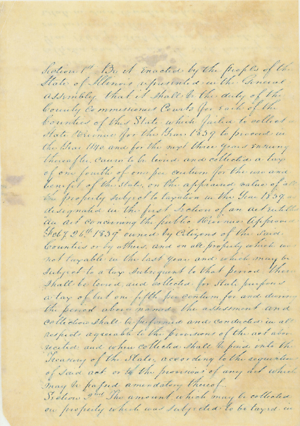 Section 1st Be it enacted by the people of the
State of Illinois represented in the General
Assembly, that it shall be the duty of the
County Commissioners Courts for each of the
Counties of this State which failed to collect
State Revenue for the Year 1839 to proceed in
the Year 1840 and for the next three years
thereafter cause to be levied and collected a tax
of one fourth of one per centum for the use and
benefit of the State, on the appraised value of all
property subject to taxation in the Year 1839
designated in the first section of an act entitled
An act concerning the public Revenue Approved
Feby 26th 1839 owned by citizens of the said
Counties or by others, and on all property which was
not taxable in the last year and which may be
subject to a tax subsequent to that period there
shall be levied and collected for State purposes
a tax of but one fifth per centum for and during
the period above named the assessment and
collection shall be performed and conducted in all
respects agreeable to the provisions of the act above
recited and when collected shall be paid into the
Treasury of the State, according to the requisition
of said act or to the provisions of any act which
may be passed amendatory thereof.
Section 2nd The amount which may be collected
on property which was subjected to be taxed in